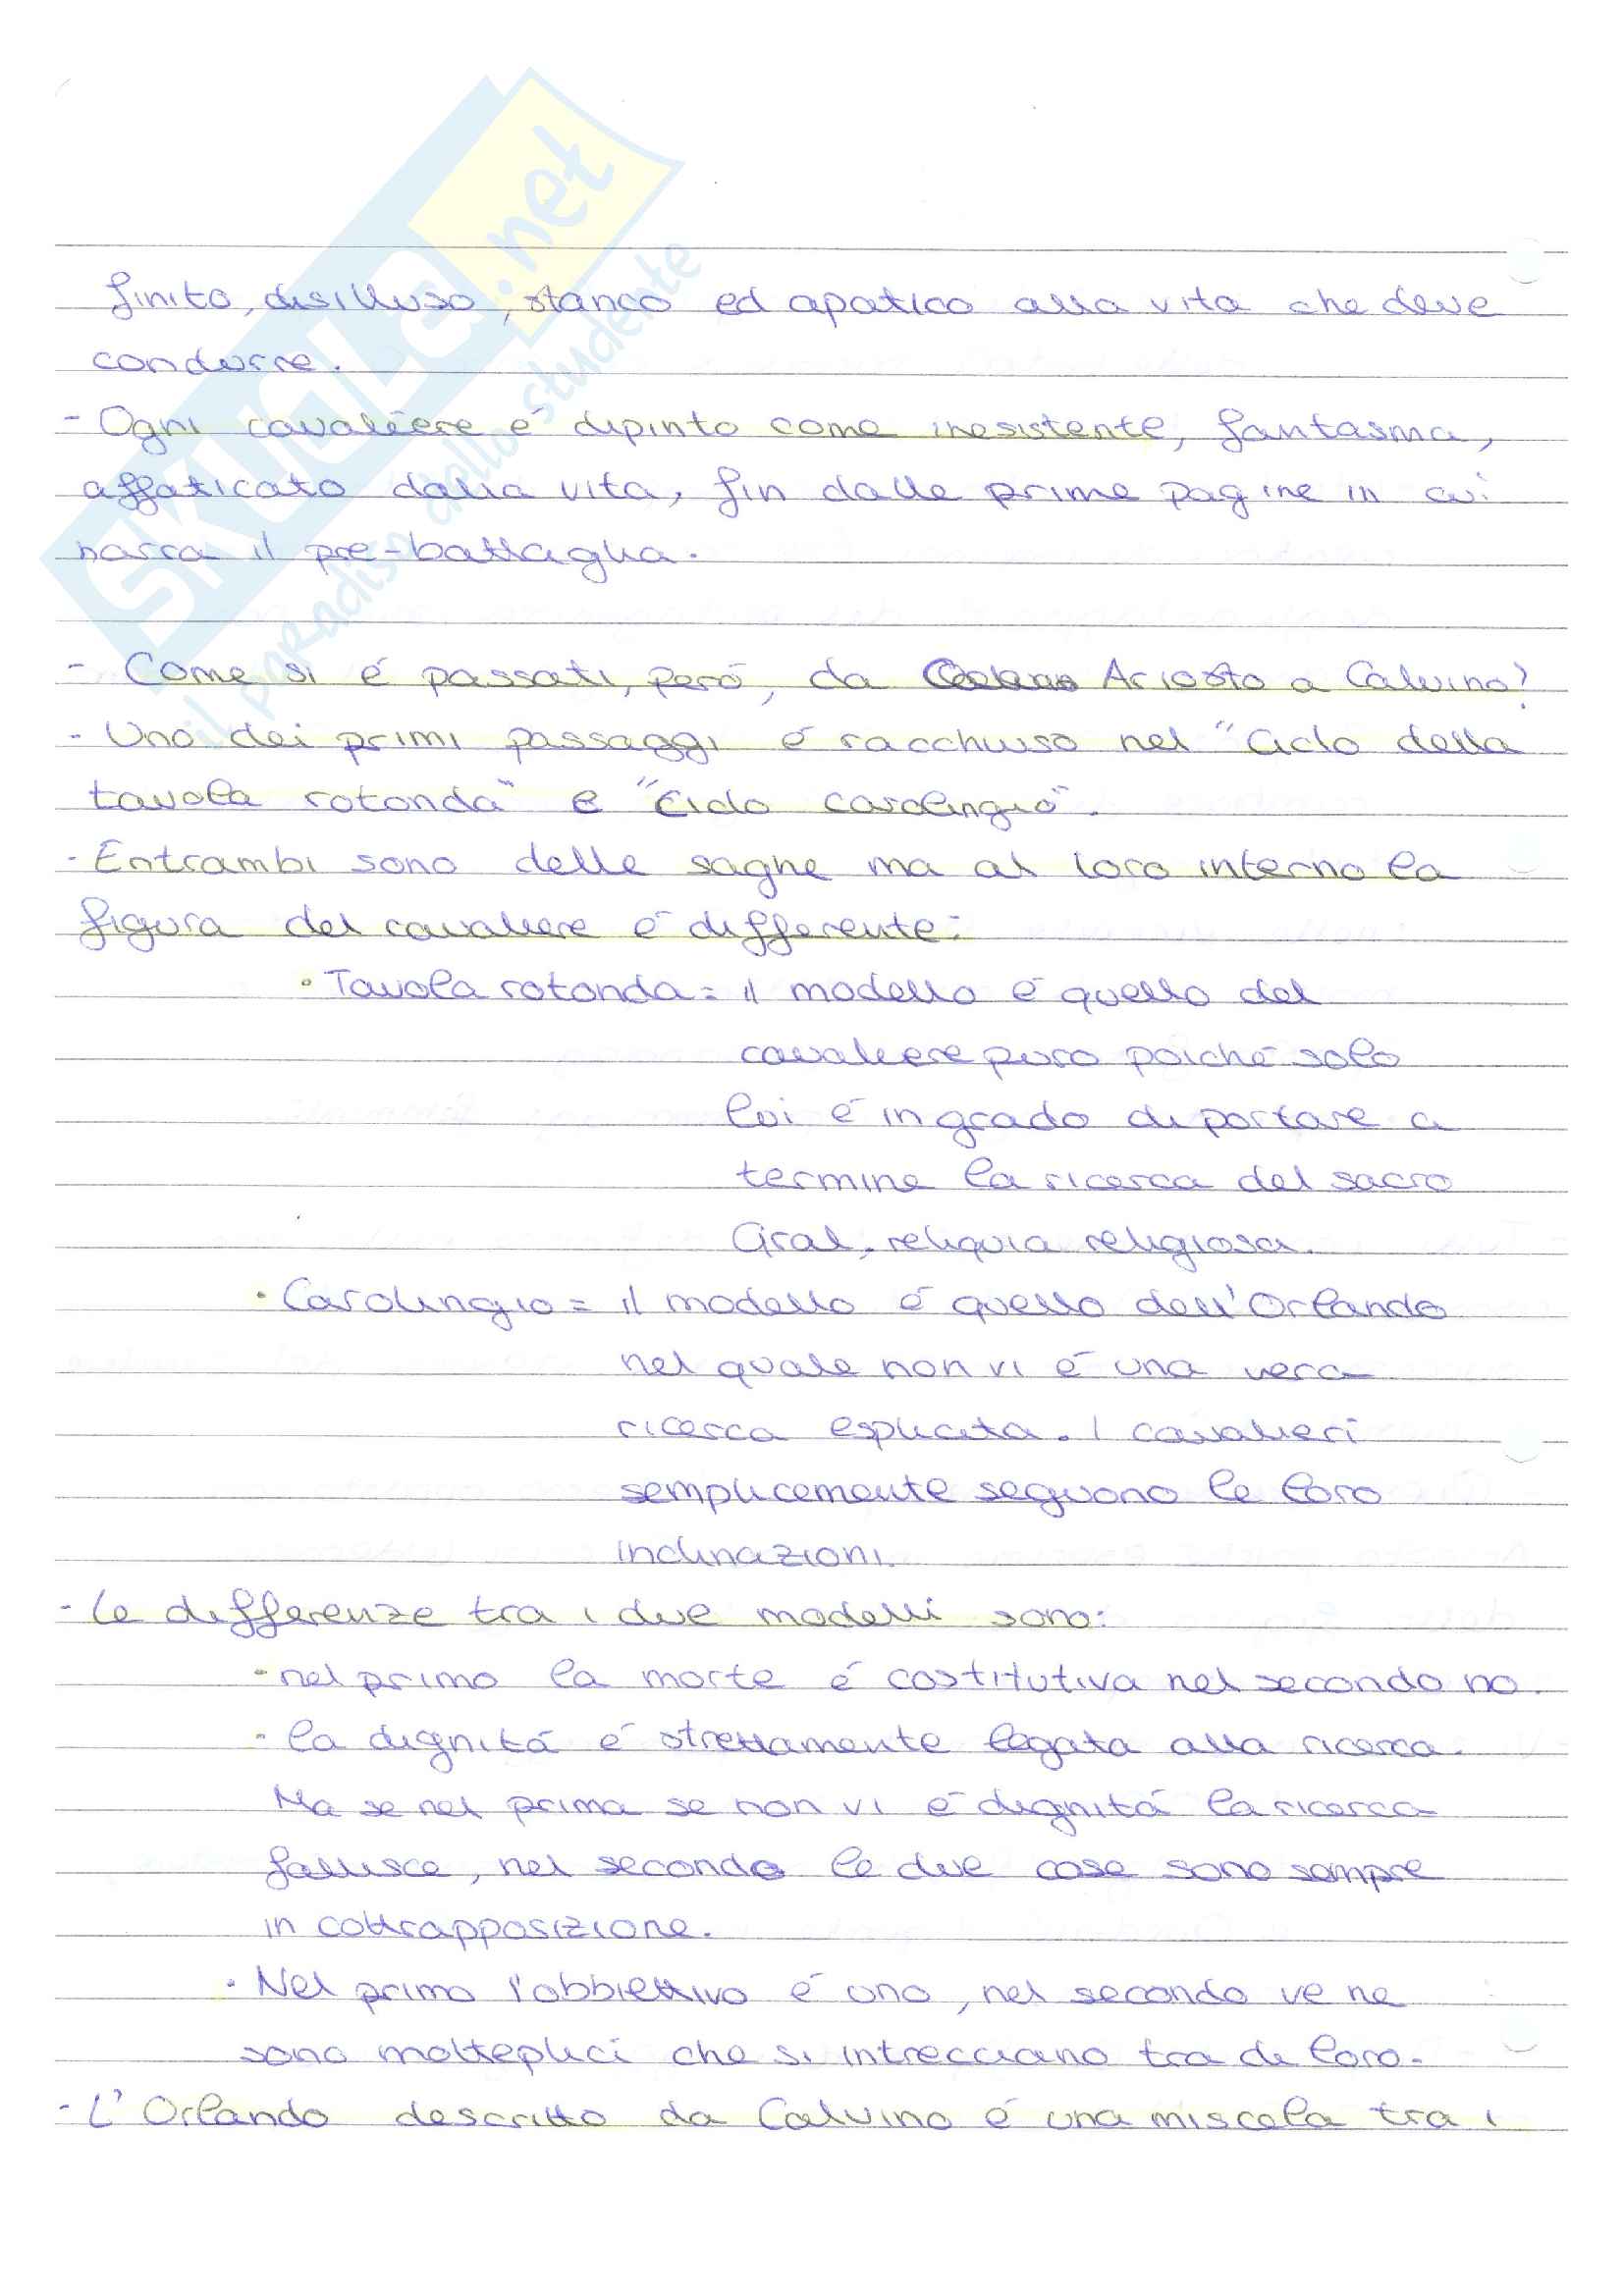 SKUOLA.net
il paradiso dello studente
finito, disilluso, stanco ed apatico alla vita che deve
condurre.
- Ogni cavaliere é dipinto come inesistente, fantasma,
affaticato dalla vita, fin dalle prime pagine in cui
narra il pre-battaglia.
- Come si é passati, peró, da Ariosto a Calvino?
- Uno dei primi passaggi é racchiuso nel "Ciclo della
tavola rotonda" e "Ciclo carolingio".
- Entrambi sono delle saghe ma al loro interno la
figura del cavaliere é differente:
• Tavola rotonda = il modello é quello del
cavaliere puro poiché solo
lui é in grado di portare a
termine la ricerca del sacro
Gral, reliquia religiosa.
• Carolingio = il modello é quello dell'Orlando
nel quale non vi é una vera
ricerca esplicita. I cavalieri
semplicemente seguono le loro
inclinazioni.
- Le differenze tra i due modelli sono:
- nel primo la morte é costitutiva nel secondo no.
- la dignitá é strettamente legata alla ricerca.
Ma se nel prima se non vi é dignitá la ricerca
fallisce, nel secondo le due cose sono sempre
in cottrapposizione.
• Nel primo l'obbiettivo é uno, nel secondo ve ne
sono molteplici che si intrecciano tra di loro.
- L'Orlando descritto da Calvino é una miscela tra i